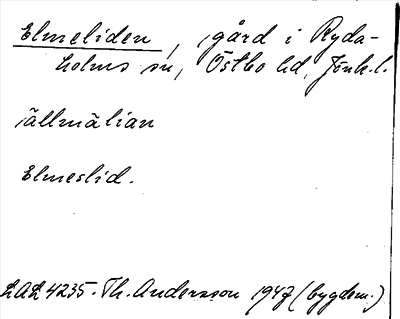 Elmeliden, gård i Ryda-
holms sn, Östbo hd, Jönk. l.
iällmälian
Elmeslid.
LAL 4235. Th. Andersson 1947 (bygdem.)